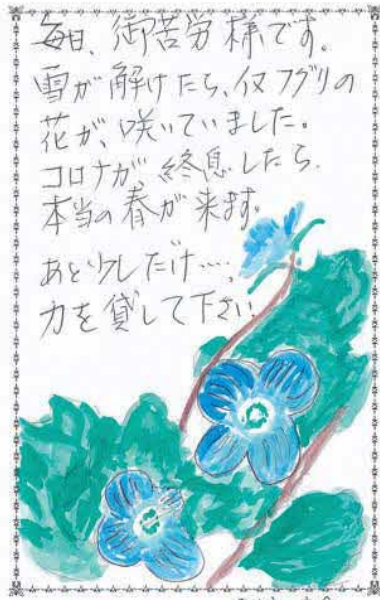 毎日、御苦労様です。
雪が解けたら、イヌフグリの
花が、咲いていました。
コロナが、終息したら、
本当の春が来ます。
あと少しだけ…、
力を貸して下さい